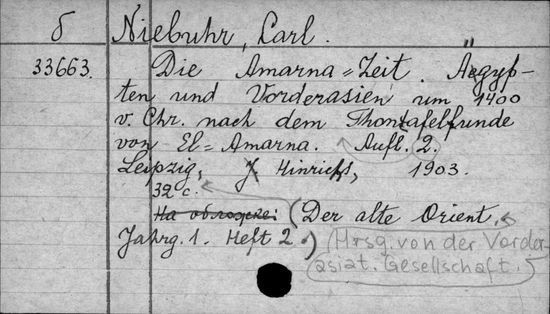 б Niebuhr, Carl.
33663. Die Amarna=Zeit. Ägyp-
ten und Vorderasien um 1400
v. Chr. nach dem Thontafelfunde
von El=Amarna. Aufl. 2.
Leipzig, J. Hinrichs, 1903.
32 c.
На обложке: (Der alte Orient.
Jahrg. 1. Heft 2.) (Hrsg. von der Vorder-
asiat. Gesellschaft.)